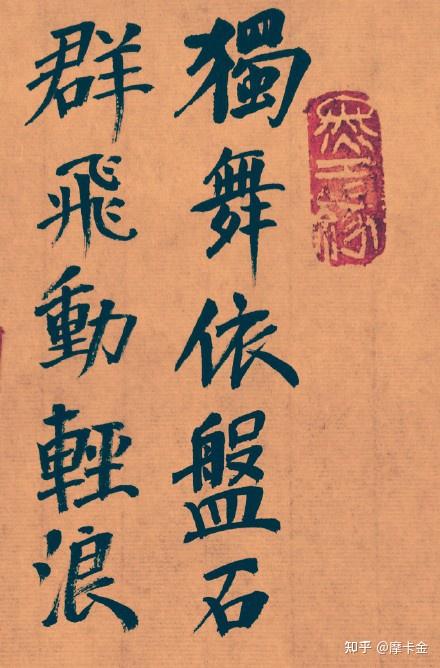 獨舞依盤石
群飛動輕浪
知乎 @摩卡金